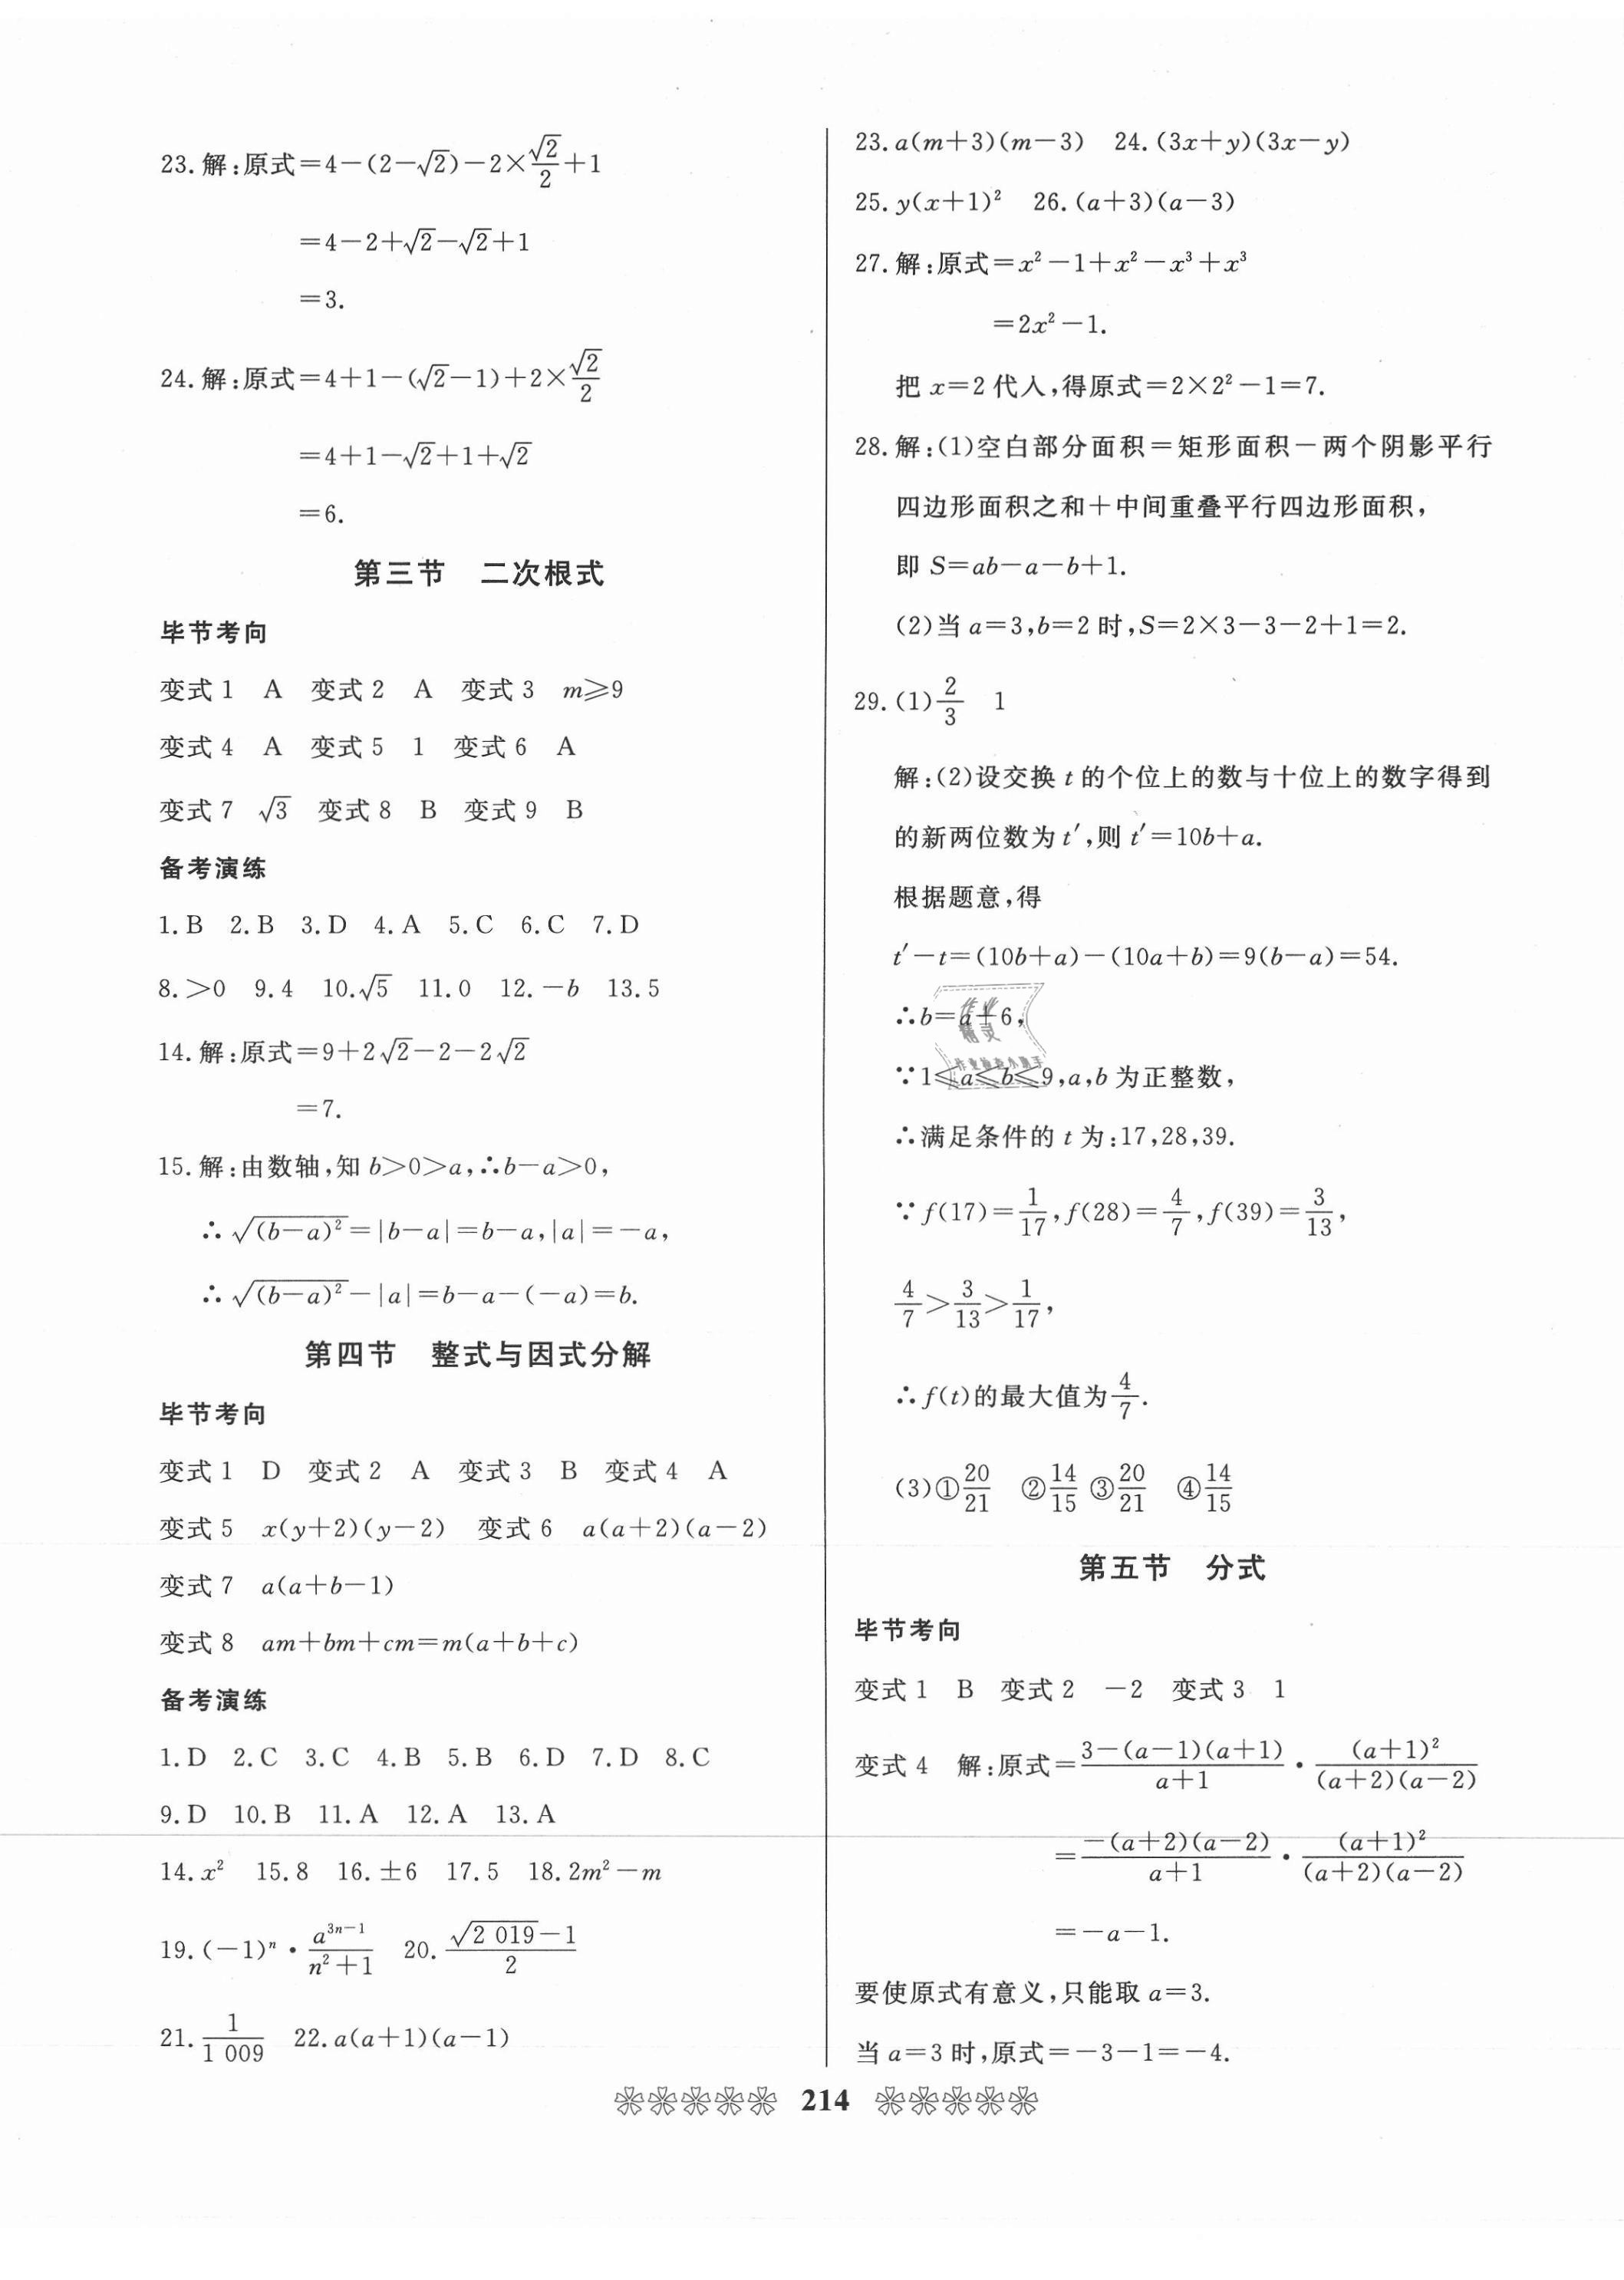 23.解:原式=4-(2-√2)-2×√2/2+1
=4-2+√2-√2+1
=3.
24.解:原式=4+1-(√2-1)+2×√2/2
=4+1-√2+1+√2
=6.
第三节 二次根式
毕节考向
变式1 A 变式2 A 变式3 m≥9
变式4 A 变式5 1 变式6 A
变式7 √3 变式8 B 变式9 B
备考演练
1.B 2.B 3.D 4.A 5.C 6.C 7.D
8.>0 9.4 10.√5 11.0 12.-b 13.5
14.解:原式=9+2√2-2-2√2
=7.
15.解:由数轴,知b>0>a,∴b-a>0,
∴√(b-a)²=|b-a|=b-a,|a|=-a,
∴√(b-a)²-|a|=b-a-(-a)=b.
第四节 整式与因式分解
毕节考向
变式1 D 变式2 A 变式3 B 变式4 A
变式5 x(y+2)(y-2) 变式6 a(a+2)(a-2)
变式7 a(a+b-1)
变式8 am+bm+cm=m(a+b+c)
备考演练
1.D 2.C 3.C 4.B 5.B 6.D 7.D 8.C
9.D 10.B 11.A 12.A 13.A
14.x² 15.8 16.±6 17.5 18.2m²-m
19.(-1)ⁿ·a³ⁿ⁻¹/(n²+1) 20.(√2 019-1)/2
21.1/1 009 22.a(a+1)(a-1)
23.a(m+3)(m-3) 24.(3x+y)(3x-y)
25.y(x+1)² 26.(a+3)(a-3)
27.解:原式=x²-1+x²-x³+x³
=2x²-1.
把x=2代入,得原式=2×2²-1=7.
28.解:(1)空白部分面积=矩形面积-两个阴影平行
四边形面积之和+中间重叠平行四边形面积,
即S=ab-a-b+1.
(2)当a=3,b=2时,S=2×3-3-2+1=2.
29.(1)2/3 1
解:(2)设交换t的个位上的数与十位上的数字得到
的新两位数为t′,则t′=10b+a.
根据题意,得
t′-t=(10b+a)-(10a+b)=9(b-a)=54.
∴b=a+6,
作业
精灵
作业检查小助手
∵1≤a≤b≤9,a,b为正整数,
∴满足条件的t为:17,28,39.
∵f(17)=1/17,f(28)=4/7,f(39)=3/13,
4/7>3/13>1/17,
∴f(t)的最大值为4/7.
(3)①20/21 ②14/15 ③20/21 ④14/15
第五节 分式
毕节考向
变式1 B 变式2 -2 变式3 1
变式4 解:原式=(3-(a-1)(a+1))/(a+1)·(a+1)²/((a+2)(a-2))
=-(a+2)(a-2)/(a+1)·(a+1)²/((a+2)(a-2))
=-a-1.
要使原式有意义,只能取a=3.
当a=3时,原式=-3-1=-4.
214